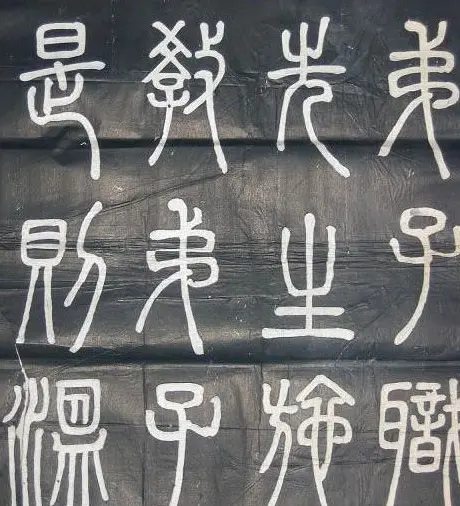 弟子職
先生施
教弟子
是則溫